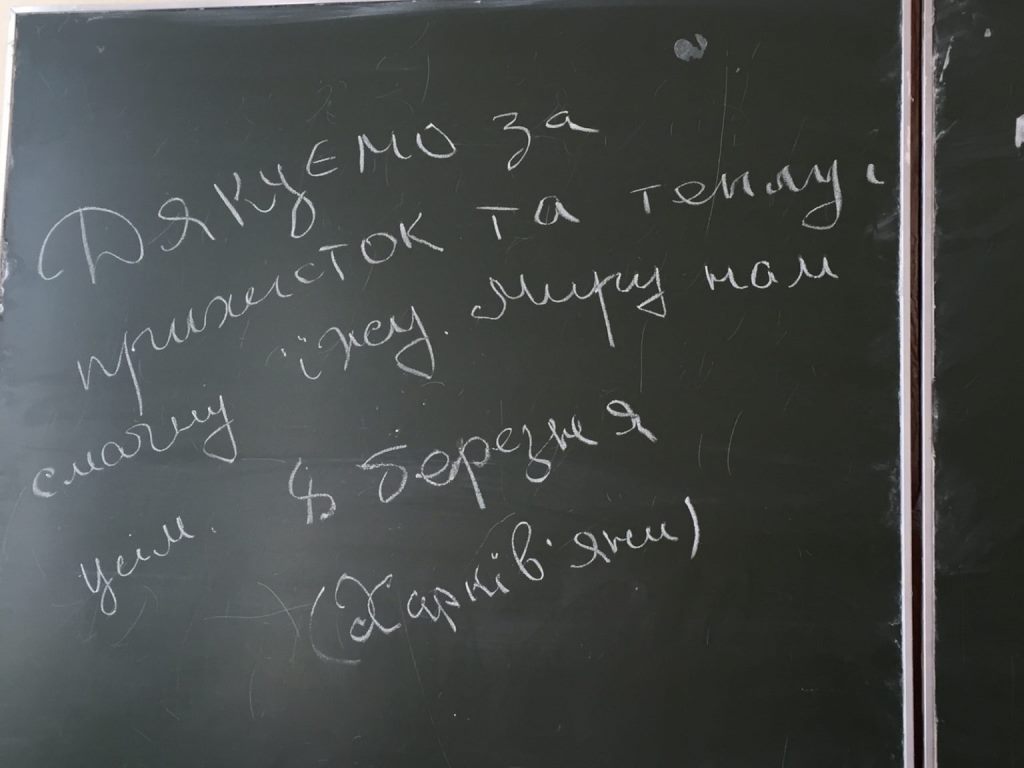 Дякуємо за
прихисток та теплу і
смачну їжу. Миру нам
усім. 8 березня
(Харків'яни)